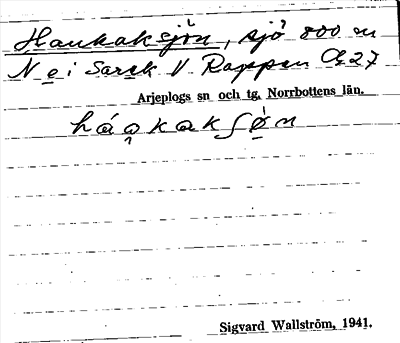 Haukaksjön, sjö 800 m
N o i Sarek V Rappen Æ27
Arjeplogs sn och tg, Norrbottens län.
háo̯kakʃö̀n
Sigvard Wallström, 1941.